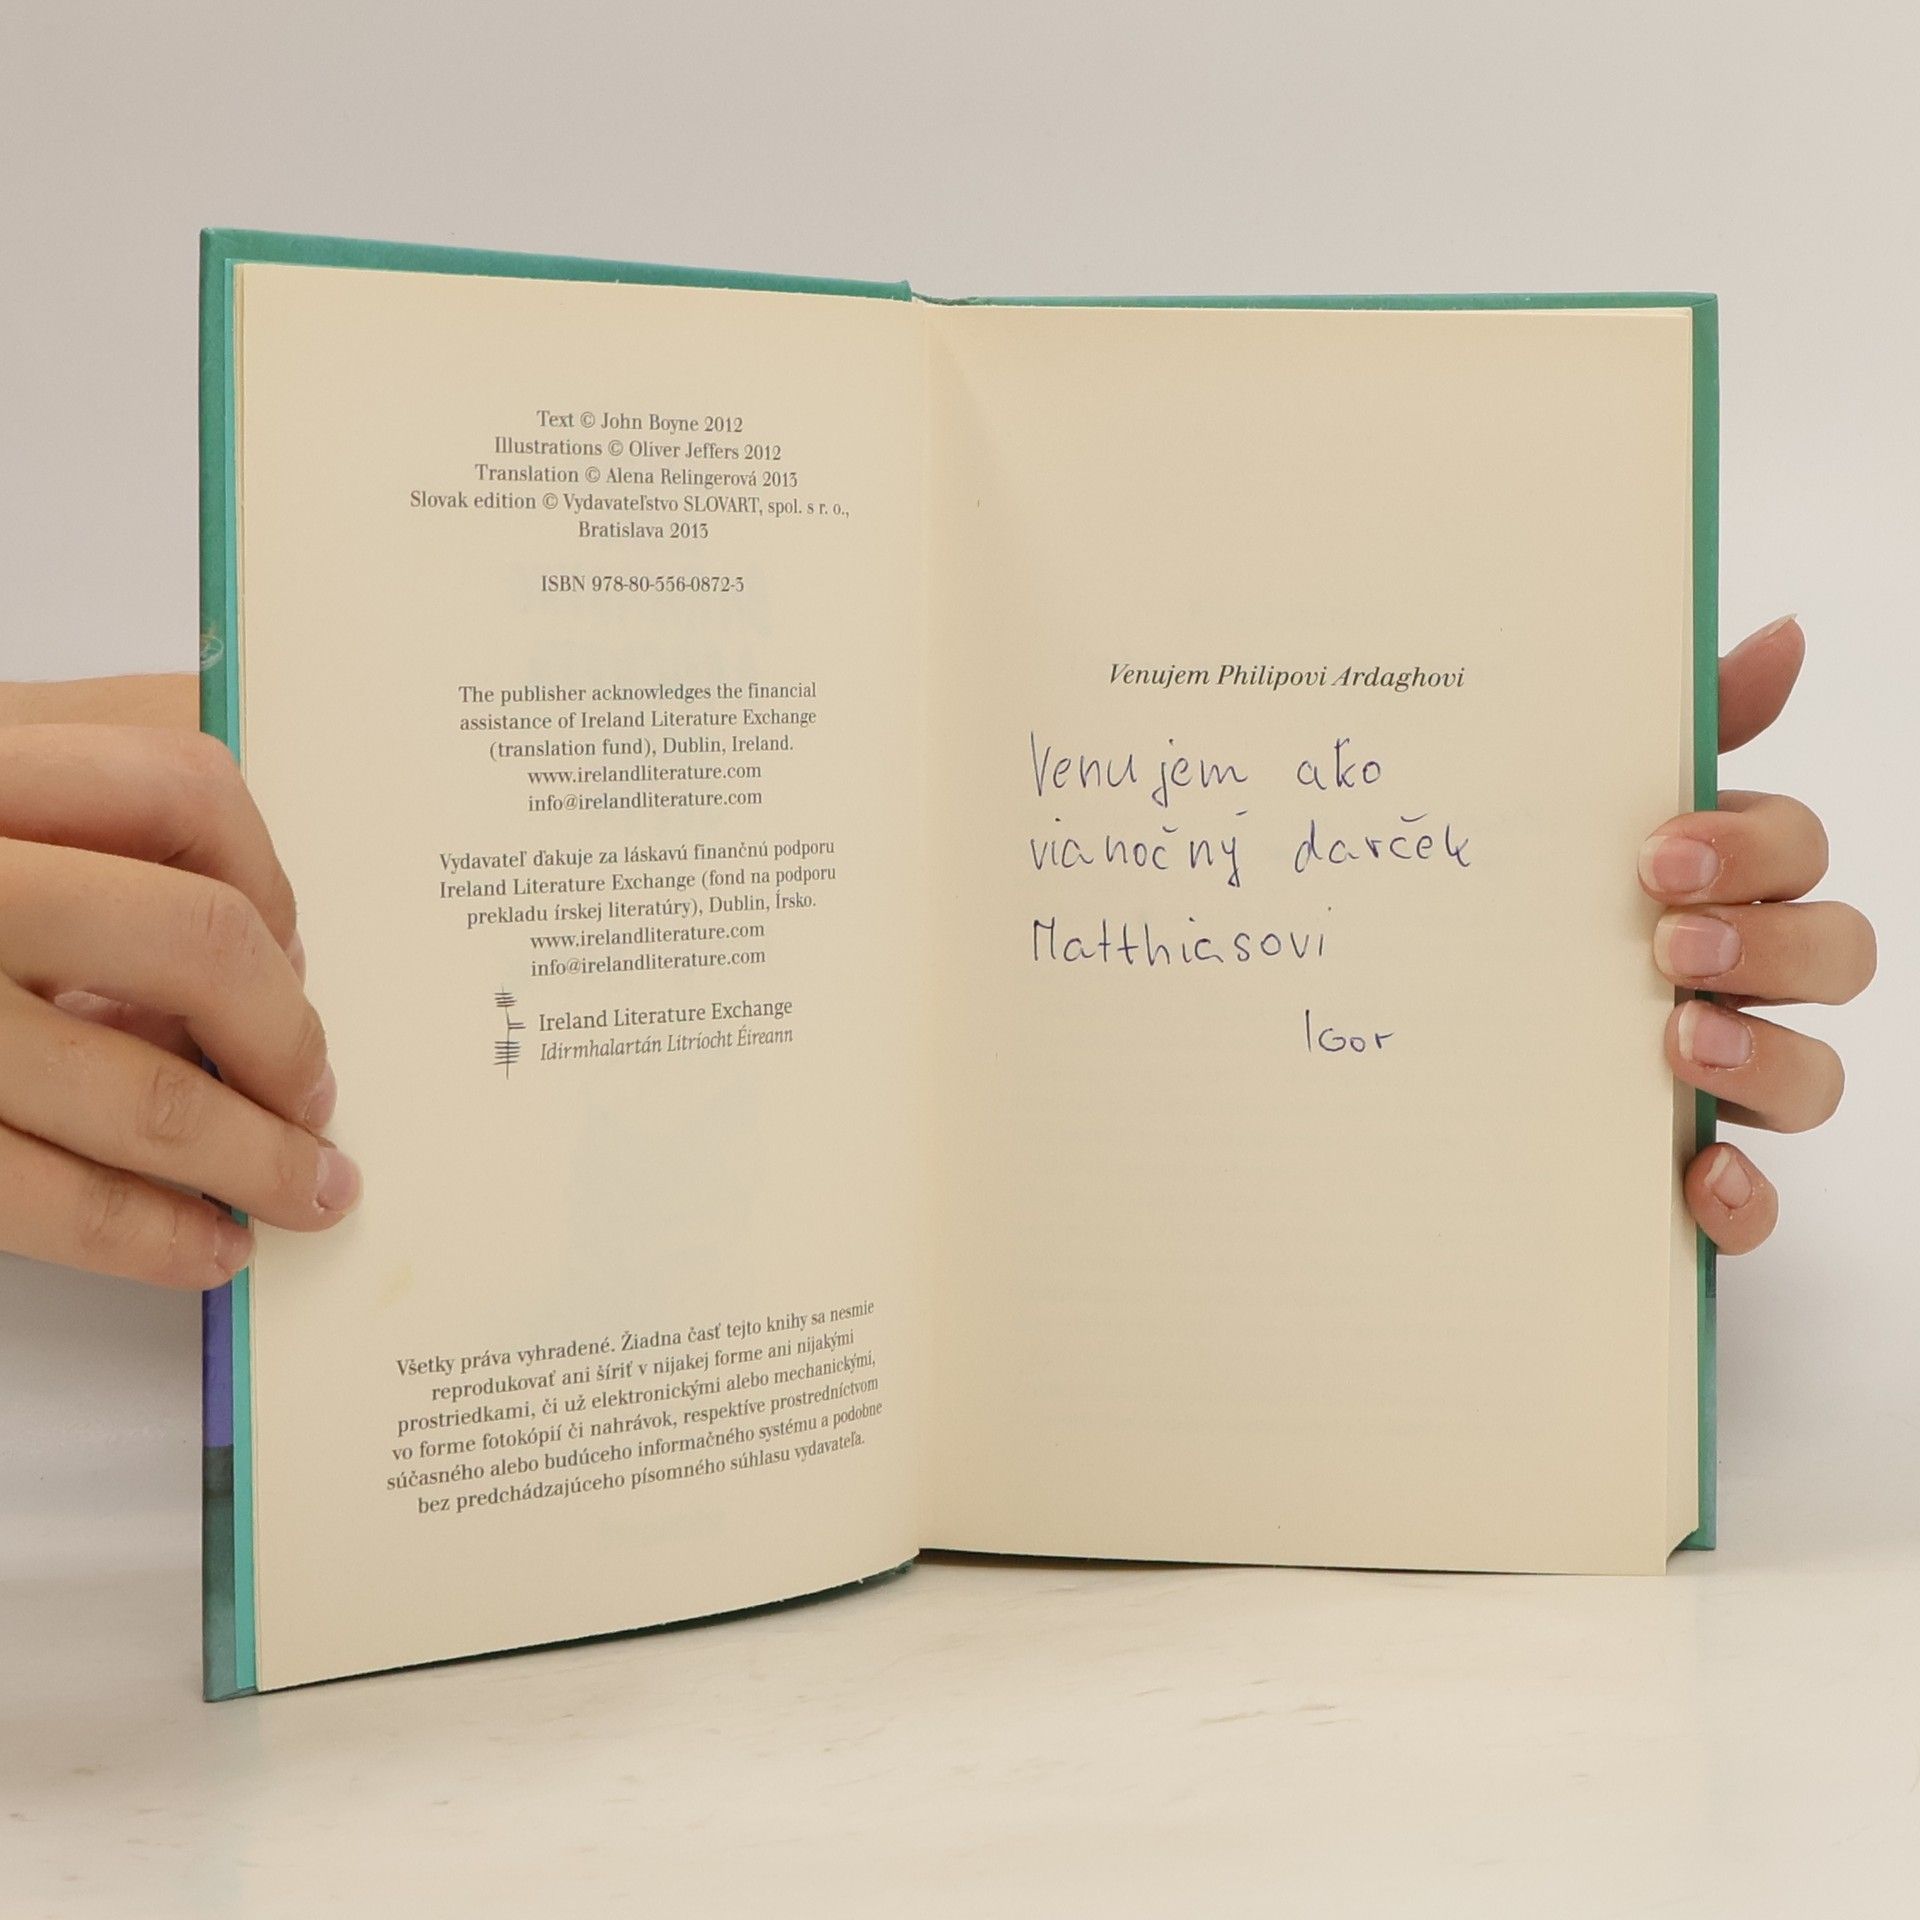 Text © John Boyne 2012
Illustrations © Oliver Jeffers 2012
Translation © Alena Relingerová 2013
Slovak edition © Vydavateľstvo SLOVART, spol. s r. o.,
Bratislava 2013
ISBN 978-80-556-0872-3
The publisher acknowledges the financial
assistance of Ireland Literature Exchange
(translation fund), Dublin, Ireland.
www.irelandliterature.com
info@irelandliterature.com
Vydavateľ ďakuje za láskavú finančnú podporu
Ireland Literature Exchange (fond na podporu
prekladu írskej literatúry), Dublin, Írsko.
www.irelandliterature.com
info@irelandliterature.com
Ireland Literature Exchange
Idirmhalartán Litríocht Éireann
Všetky práva vyhradené. Žiadna časť tejto knihy sa nesmie
reprodukovať ani šíriť v nijakej forme ani nijakými
prostriedkami, či už elektronickými alebo mechanickými,
vo forme fotokópií či nahrávok, respektíve prostredníctvom
súčasného alebo budúceho informačného systému a podobne
bez predchádzajúceho písomného súhlasu vydavateľa.
Venujem Philipovi Ardaghovi
Venujem ako
vianočný darček
Matthiasovi
Igor